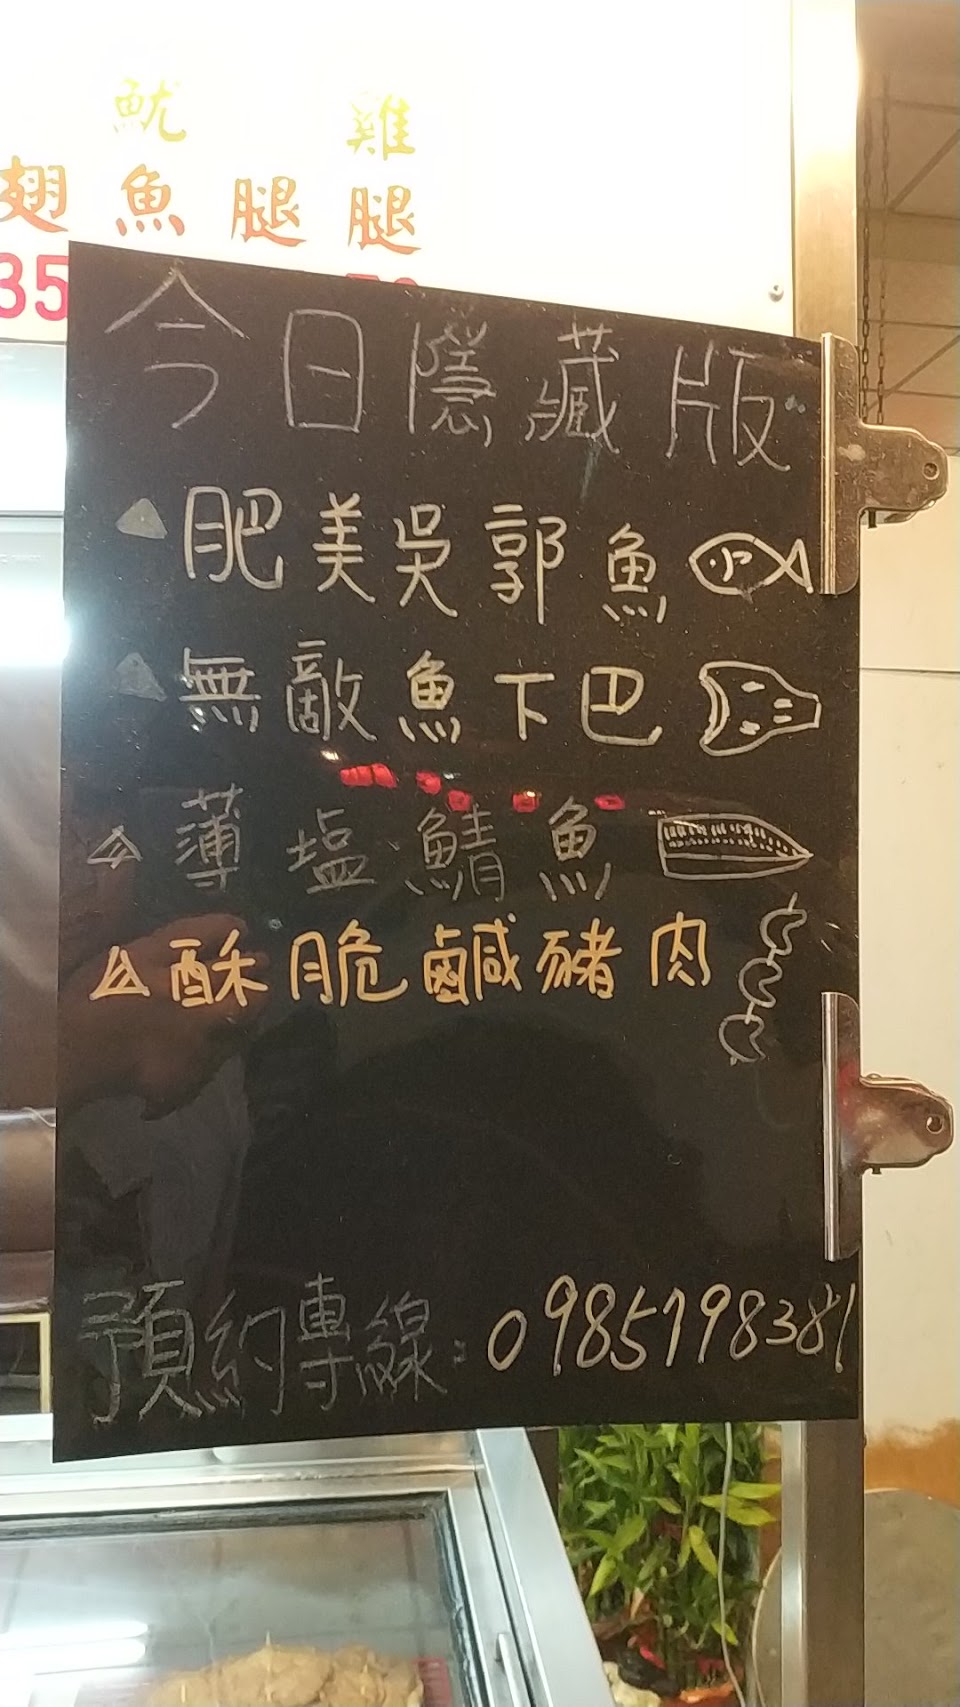 魷 雞
翅 魚 腿 腿
35
今日隱藏版
肥美吳郭魚
無敵魚下巴
薄塩鯖魚
酥脆鹹豬肉
預約專線:0985798381